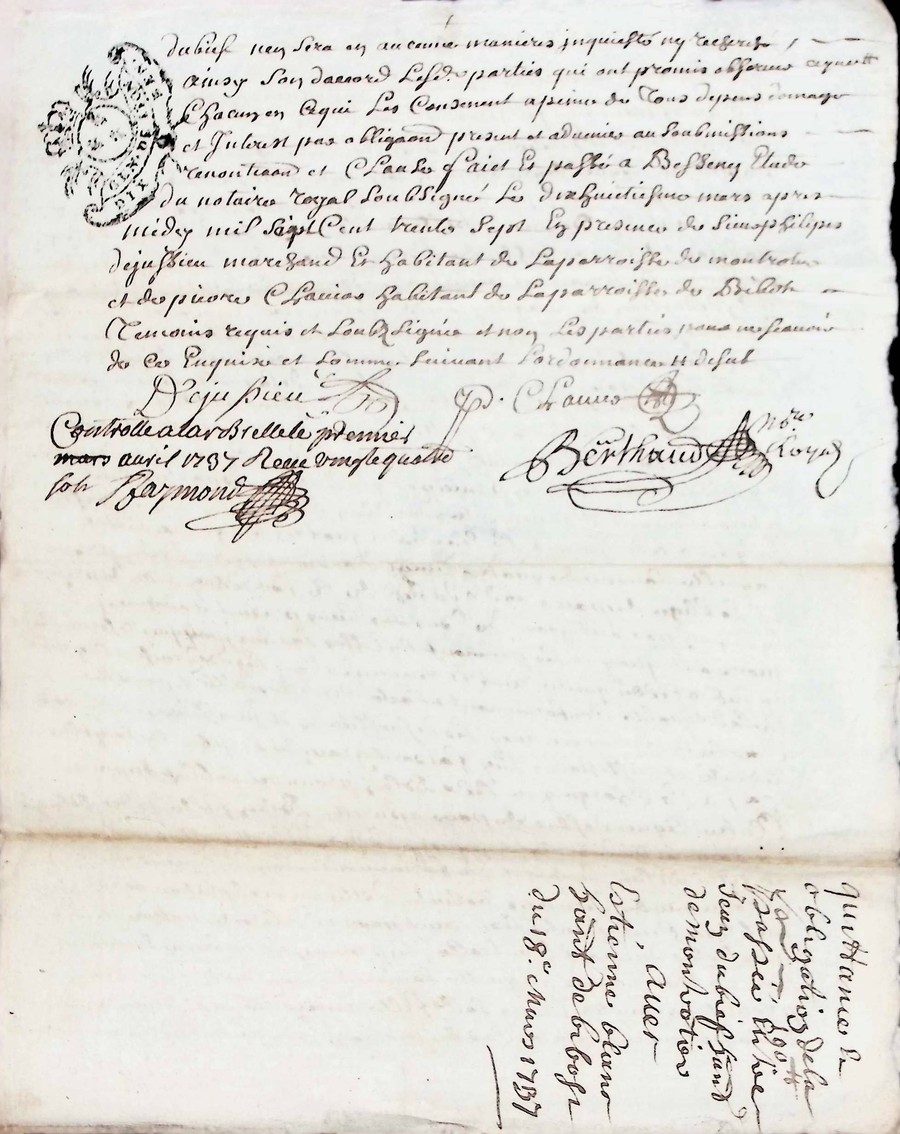 dubief nen sera en aucune manieres inquieté ny recherché
ainsy son daccord lesd. parties qui ont promis observer
chacun en cequi les concernent a peine de tous depens domage
et Interest par obligaon present et advenir au soubmissions
renontiaon et clause fait et passé a Bessenay Etude
du notaire royal soubsigné le dixhuitiesme mars apres
midy mil sept Cent trente sept En presence de
dejussieu marchand et habitant de Laparroisse de montrotier
et de pierre Chanas habitant de Laparroisse de Bibost
Temoins requis et soubzsignés et non Les parties pour ne scavoir
de ce Enquise et somme suivant Lordonnance
Dejussieu
P. 
Controllé a larBrelle le premier
mars avril 1737 Receu vingtequatre
sols Raymond
Berthaud nore Royal
quittance &
obligation de la
passée Entre
Jean dubief
de montrotier
avec
Estienne blanc
de bibost
du 18e Mars 1737